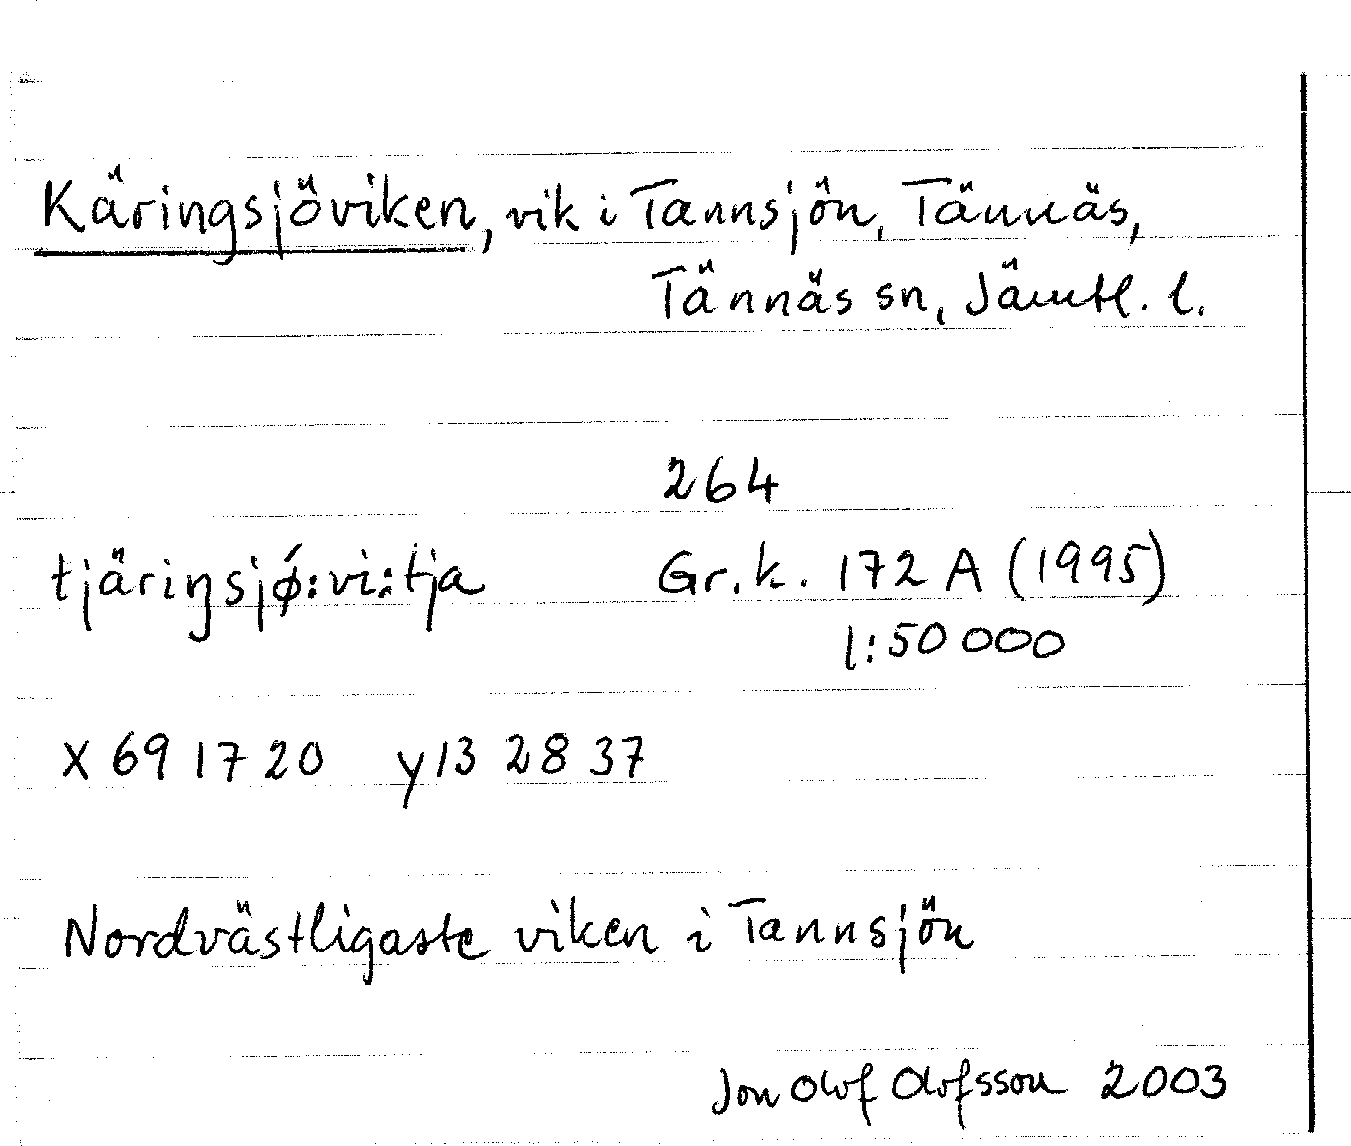 Käringsjöviken, vik i Tannsjön, Tännäs,
Tännäs sn, Jämtl. l.
264
tjäriŋsjǿ:vi:tja Gr.k. 172 A (1995)
1:50 000
X 69 17 20 y 13 28 37
Nordvästligaste viken i Tannsjön
Jon Olof Olofsson 2003